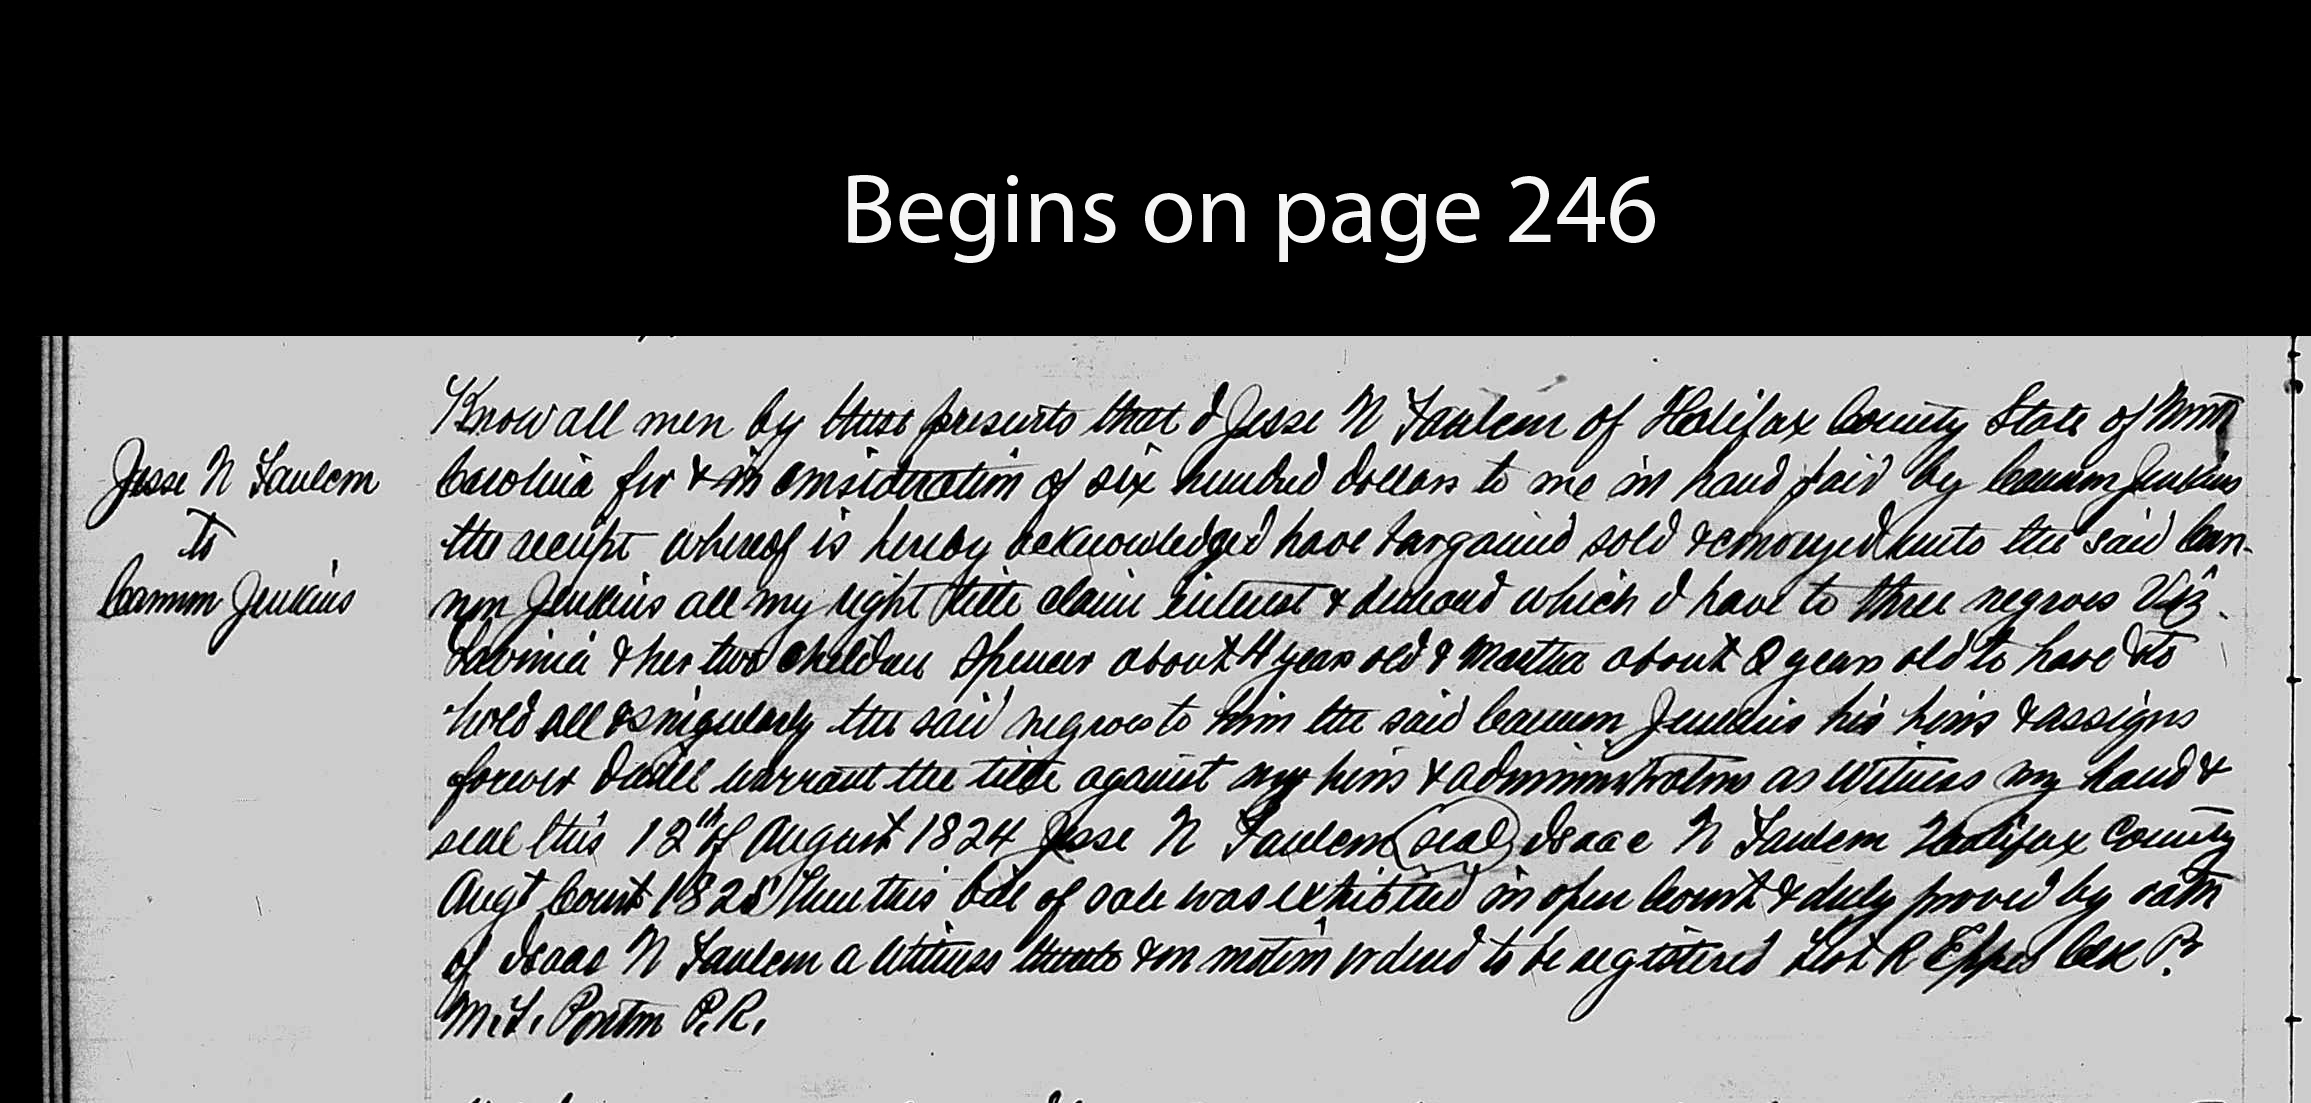 Begins on page 246
Jesse N Faulcon
to
Cannon Jenkins
Know all men by these presents that I Jesse N Faulcon of Halifax County State of North
Carolina for & in consideration of six hundred dollars to me in hand paid by Cannon Jenkins
the receipt whereof is hereby acknowledged have bargained sold & conveyed unto the said Can-
non Jenkins all my right title claim interest & demand which I have to three negroes Viz
Lavinia & her two children Spencer about 4 years old & Martha about 2 years old to have & to
hold all & singularly the said negroes to him the said Cannon Jenkins his heirs & assigns
forever & will warrant the title against my heirs & administrators as witness my hand &
seal this 12th of August 1824 Jesse N Faulcon (seal) Isaac N Faulcon Halifax County
Augt Court 1825 Then this bill of sale was exhibited in open Court & duly proved by oath
of Isaac N Faulcon a witness thereto & on motion ordered to be registered Test R Eppes Clk
M. F. Ponton P. R.